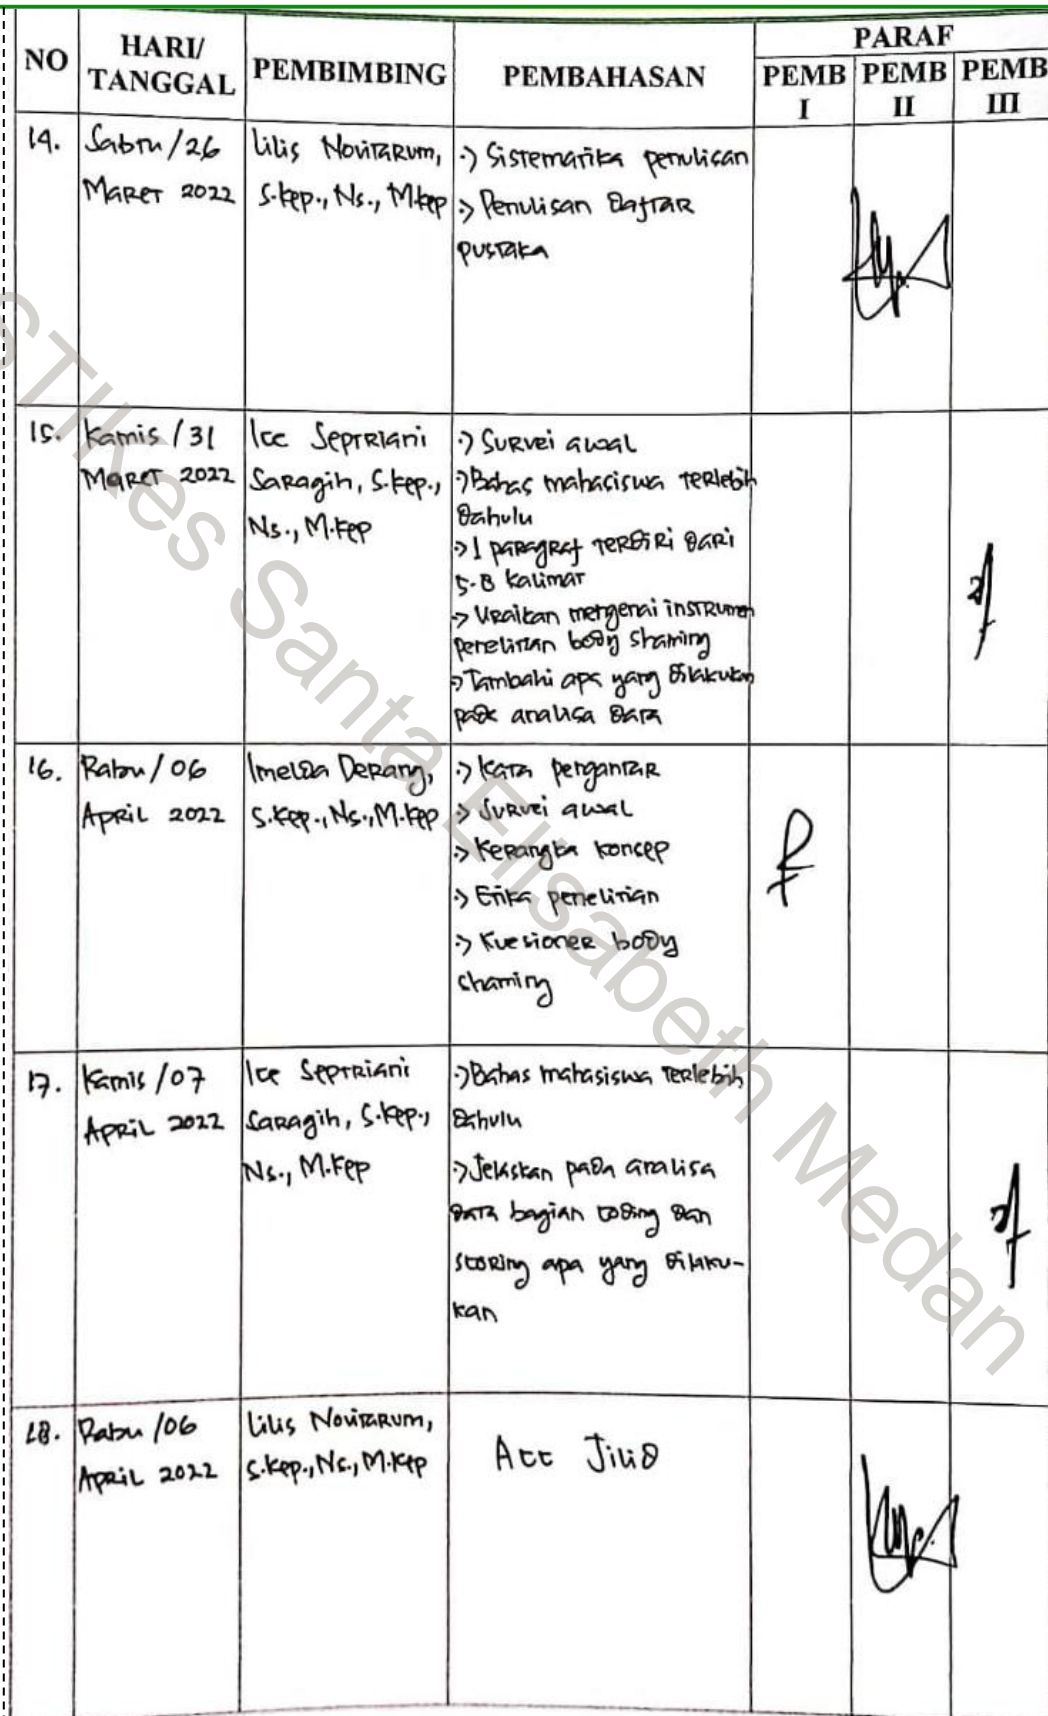 NO
HARI/
TANGGAL
PEMBIMBING
PEMBAHASAN
PARAF
PEMB
I
PEMB
II
PEMB
III
14.
Sabtu/26
Maret 2022
Lilis Novitarum,
S.kep., Ns., M.kep
·) Sistematika penulisan
·) Penulisan Daftar
pustaka
15.
Kamis /31
Maret 2022
Ice Septriani
Saragih, S.kep.,
Ns., M.Kep
·) Survei awal
·) Bahas mahasiswa terlebih
Dahulu
·) 1 paragraf terdiri dari
5-8 kalimat
·) Uraikan mengenai instrumen
penelitian body shaming
·) Tambahi apa yang dilakukan
pada analisa data
16.
Rabu/06
April 2022
Imelda Derang,
S.Kep., Ns., M.Kep
·) Kata pengantar
·) Survei awal
·) Kerangka konsep
·) Etika penelitian
·) Kuesioner body
shaming
17.
Kamis /07
April 2022
Ice Septriani
Saragih, S.kep.,
Ns., M.Kep
·) Bahas mahasiswa terlebih
Dahulu
·) Jelaskan pada analisa
data bagian coding dan
scoring apa yang dilaku-
kan
18.
Rabu /06
April 2022
Lilis Novitarum,
S.kep., Ns., M.kep
Acc Jilid
STIKes Santa Elisabeth Medan